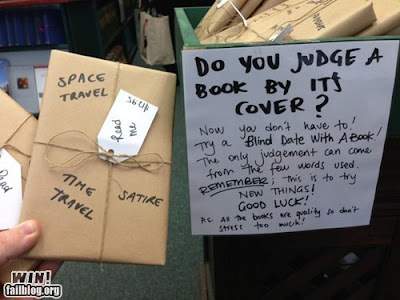 SPACE
TRAVEL
Read
Me
TIME
TRAVEL
SATIRE
Read
DO YOU JUDGE A
BOOK BY ITS
COVER?
Now you don't have to!
Try a Blind Date With A Book!
The only judgement can come
from the few words used.
REMEMBER; this is to try
NEW THINGS!
GOOD LUCK!
P.S. All the books are quality so don't
stress too much!
WIN!
failblog.org